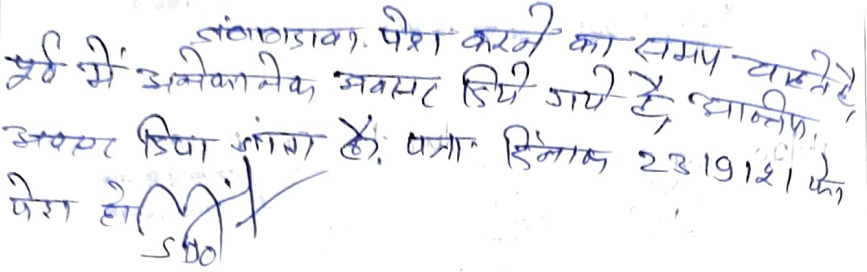 पेश करने का समय चाहते है,
पूर्व में अनेकानेक अवसर दिये गये है, अन्तिम
अवसर दिया जाता है। पत्रा दिनांक 23/9/21 को
पेश हो
SDO